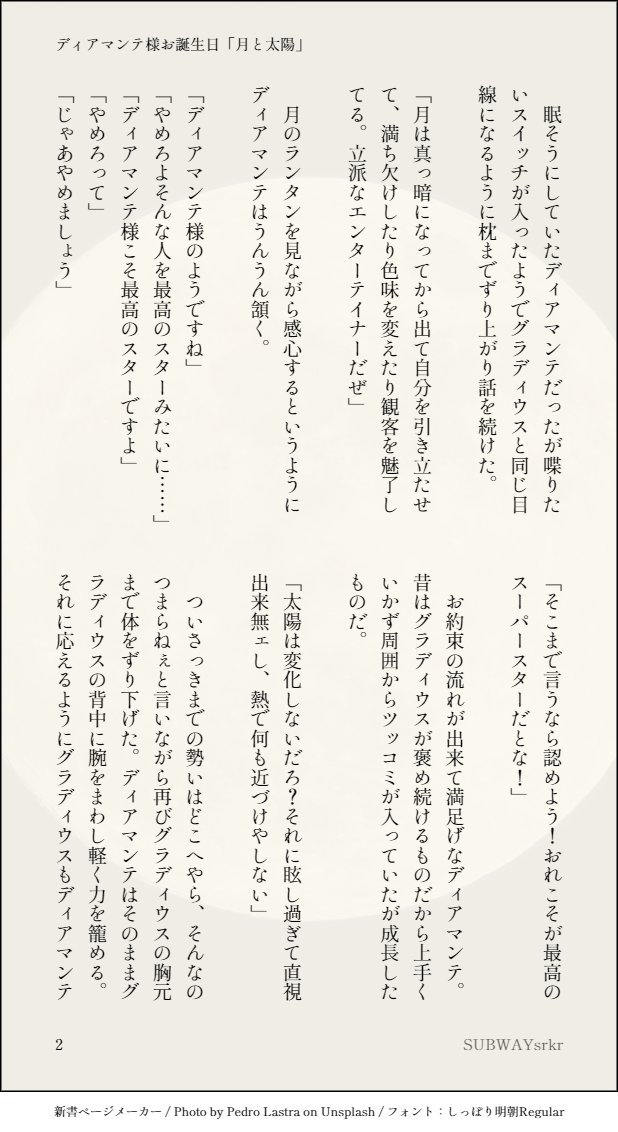 ディアマンテ様お誕生日「月と太陽」
眠そうにしていたディアマンテだったが喋りた
いスイッチが入ったようでグラディウスと同じ目
線になるように枕までずり上がり話を続けた。
「月は真っ暗になってから出て自分を引き立たせ
て、満ち欠けしたり色味を変えたり観客を魅了し
てる。立派なエンターテイナーだぜ」
月のランタンを見ながら感心するというように
ディアマンテはうんうん頷く。
「ディアマンテ様のようですね」
「やめろよそんな人を最高のスターみたいに……」
「ディアマンテ様こそ最高のスターですよ」
「やめろって」
「じゃあやめましょう」
「そこまで言うなら認めよう！おれこそが最高の
スーパースターだとな！」
お約束の流れが出来て満足げなディアマンテ。
昔はグラディウスが褒め続けるものだから上手く
いかず周囲からツッコミが入っていたが成長した
ものだ。
「太陽は変化しないだろ？それに眩し過ぎて直視
出来無ェし、熱で何も近づけやしない」
ついさっきまでの勢いはどこへやら、そんなの
つまらねぇと言いながら再びグラディウスの胸元
まで体をずり下げた。ディアマンテはそのままグ
ラディウスの背中に腕をまわし軽く力を籠める。
それに応えるようにグラディウスもディアマンテ
2
SUBWAYsrkr
新書ページメーカー / Photo by Pedro Lastra on Unsplash / フォント：しっぽり明朝Regular